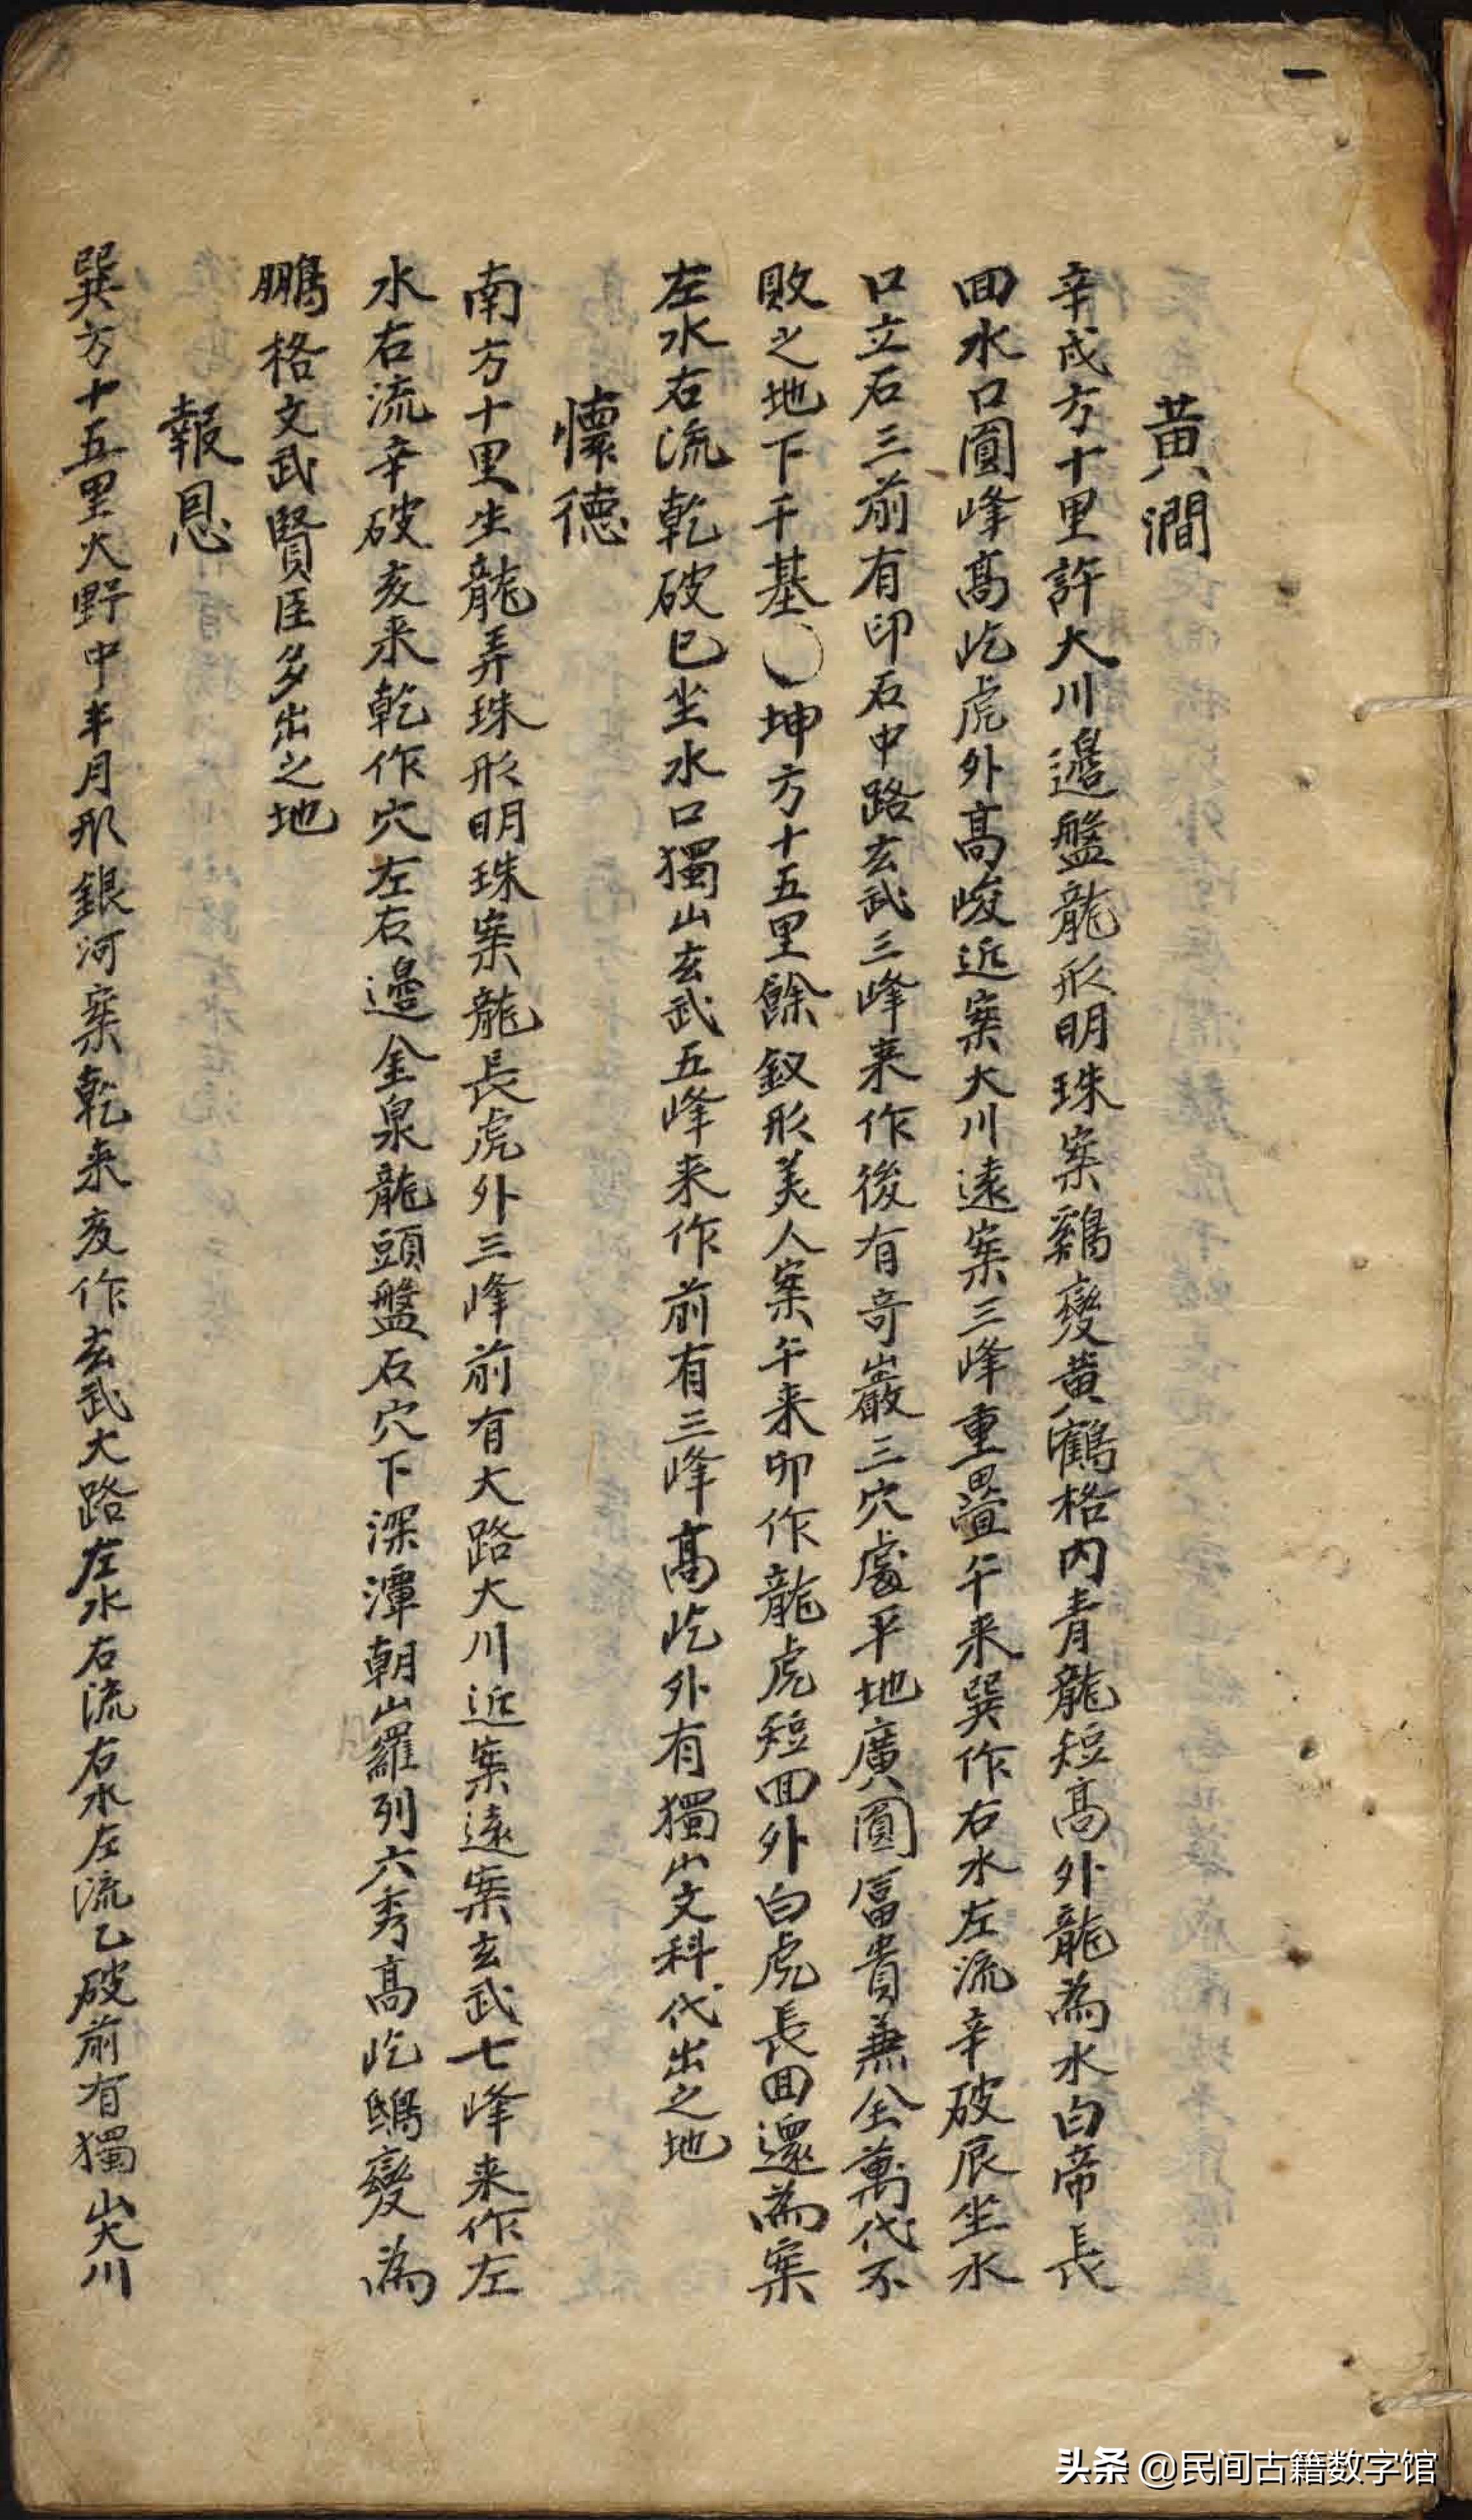 一
黄澗
辛戌方十里許大川邉盤龍形明珠案鷄變黄鶴格内青龍短高外龍為水白帝長
回水口圓峰高屹虎外高峻近案大川遠案三峰重疊午来巽作右水左流辛破辰坐水
口立石三前有印石中路玄武三峰来作後有奇巖三穴處平地廣圓富貴兼全萬代不
敗之地下千基〇坤方十五里餘釵形美人案午来卯作龍虎短回外白虎長回還為案
左水右流乾破巳坐水口獨山玄武五峰来作前有三峰高屹外有獨山文科代出之地
懷德
南方十里生龍弄珠形明珠案龍長虎外三峰前有大路大川近案遠案玄武七峰来作左
水右流辛破亥来乾作穴左右邉金泉龍頭盤石穴下深潭朝山羅列六秀高屹鵰變為
鵬格文武賢臣多出之地
報恩
巽方十五里大野中半月形銀河案乾来亥作玄武大路左水右流右水左流乙破前有獨山大川
头条 @民间古籍数字馆